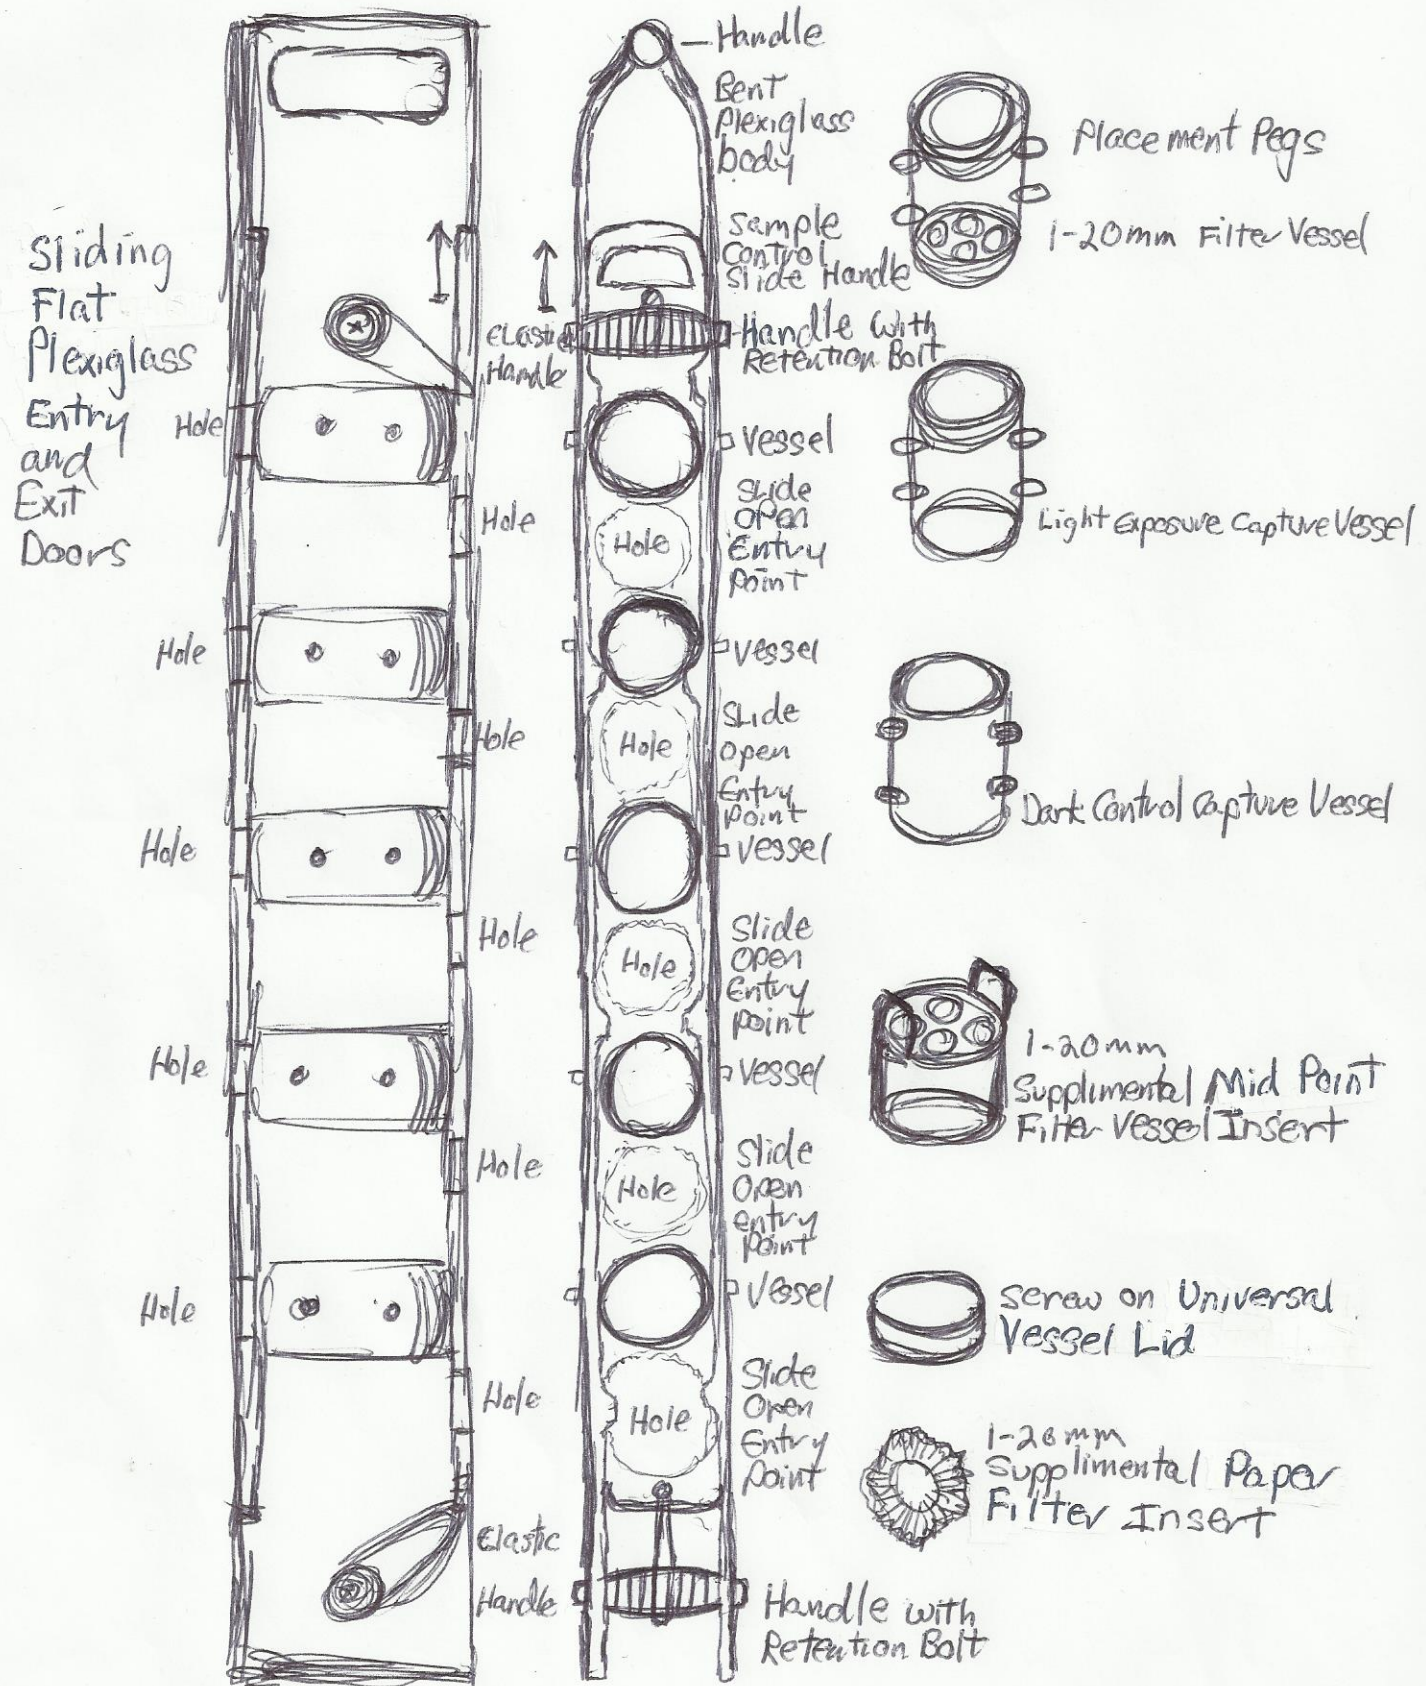 Sliding
Flat
Plexiglass
Entry
and
Exit
Doors
Hole
Hole
Hole
Hole
Hole
Elastic
Handle
Hole
Hole
Hole
Hole
Hole
Elastic
Handle
Handle
Bent
Plexiglass
body
Sample
Control
Slide Handle
Handle With
Retention Bolt
Vessel
Slide
Open
Entry
Point
Hole
Vessel
Slide
Open
Entry
Point
Hole
Vessel
Slide
Open
Entry
Point
Hole
Vessel
Slide
Open
entry
Point
Hole
Vessel
Slide
Open
Entry
Point
Hole
Handle with
Retention Bolt
Placement Pegs
1-20mm Filter Vessel
Light Exposure Capture Vessel
Dark Control Capture Vessel
1-20mm
Supplimental Mid Point
Filter Vessel Insert
Screw on Universal
Vessel Lid
1-20mm
Supplimental Paper
Filter Insert